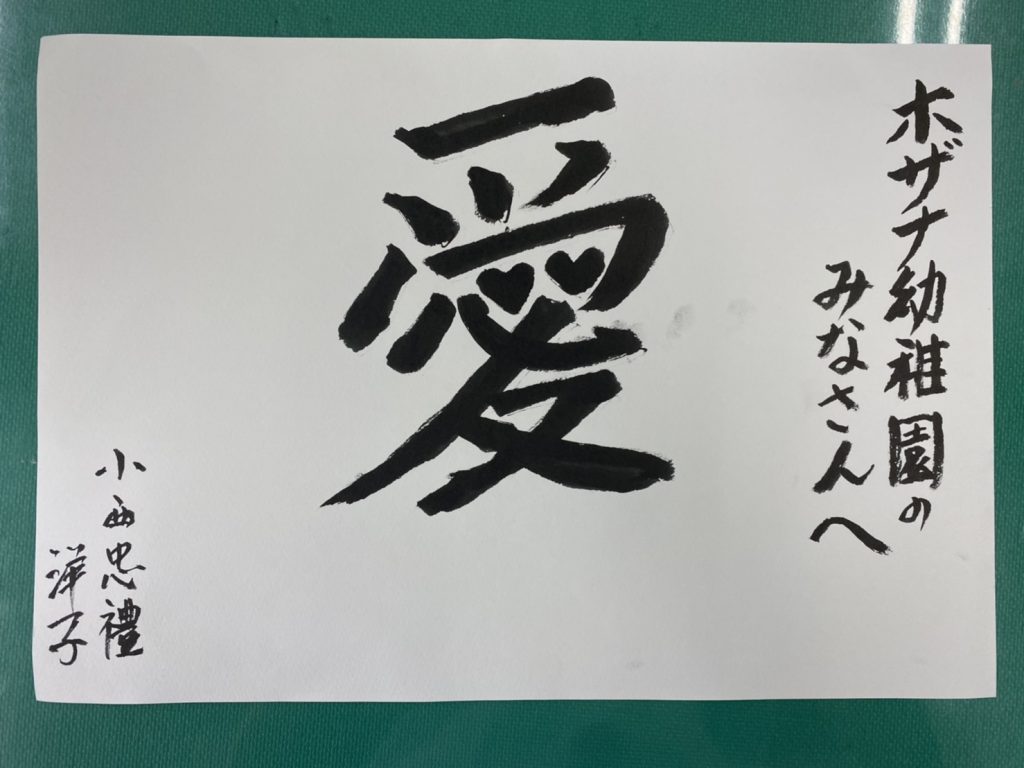 ホザナ幼稚園の
みなさんへ
愛
小西忠禮
洋子